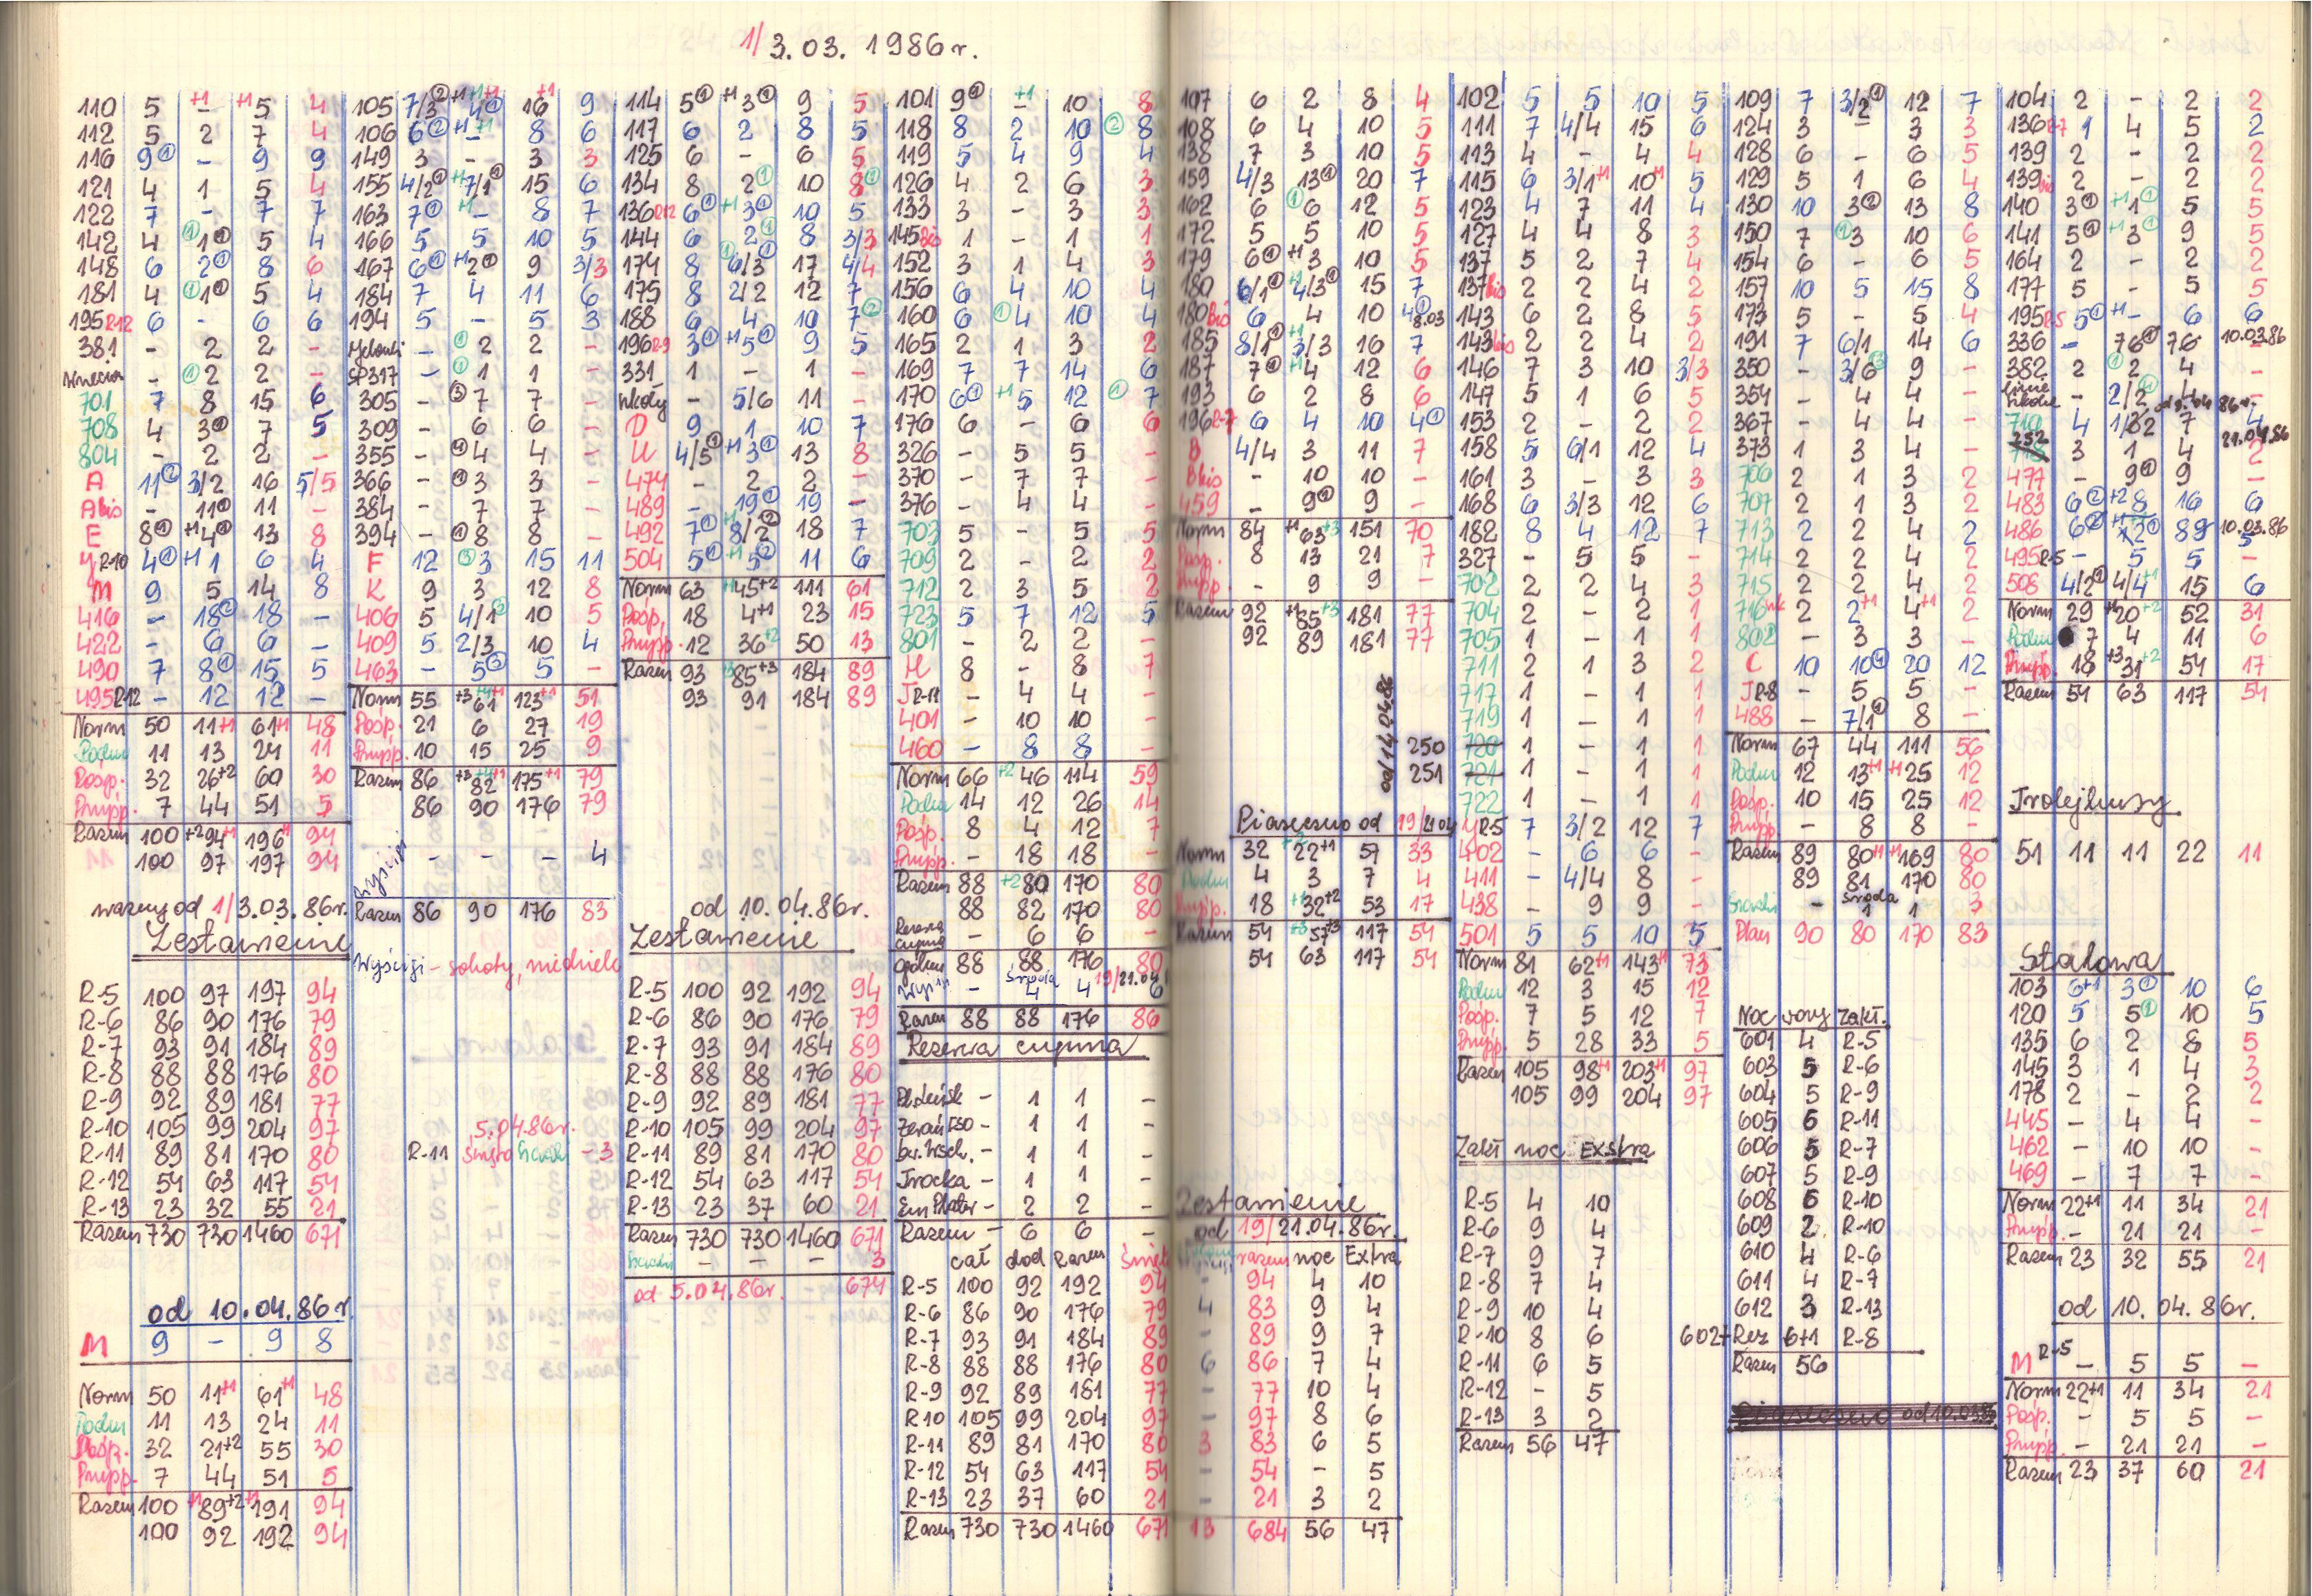 1/3.03.1986r.
110 5 +1 - +1 5 4
112 5 2 7 4
116 9① - 9 9
121 4 1 5 4
122 7 - 7 7
142 4 ①1① 5 4
148 6 2① 8 6
181 4 ①1① 5 4
195R12 6 - 6 6
381 - 2 2 -
- ①2 2 -
701 7 8 15 6
708 4 3① 7 5
804 - 2 2 -
A 11② 3/2 16 5/5
Abis - 11① 11 -
E 8① +1 4① 13 8
YR-10 4① +1 1 6 4
M 9 5 14 8
416 - 18② 18 -
422 - 6 6 -
490 7 8① 15 5
495R12 - 12 12 -
Norm 50 11+1 61+1 48
Podm 11 13 24 11
Posp. 32 26+2 60 30
Przysp. 7 44 51 5
Razem 100 +2 94+1 196+1 94
100 97 197 94
ważny od 1/3.03.86r.
Zestawienie
R-5 100 97 197 94
R-6 86 90 176 79
R-7 93 91 184 89
R-8 88 88 176 80
R-9 92 89 181 77
R-10 105 99 204 97
R-11 89 81 170 80
R-12 54 63 117 54
R-13 23 32 55 21
Razem 730 730 1460 671
od 10.04.86r
M 9 - 9 8
Norm 50 11+1 61+1 48
Podm 11 13 24 11
Pośp. 32 21+2 55 30
Przysp. 7 44 51 5
Razem 100 +1 89+2 +1 191 94
100 92 192 94
105 7/3② +1 4① +1 16 +1 9
106 6② +1 - +1 8 6
149 3 - 3 3
155 4/2① +1 7/1① 15 6
163 7① +1 - 8 7
166 5 5 10 5
167 6① +1 2① 9 3/3
184 7 4 11 6
194 5 - 5 3
- ①2 2 -
SP317 - ①1 1 -
305 - ③7 7 -
309 - 6 6 -
355 - ④4 4 -
366 - ①3 3 -
384 - 7 7 -
394 - ①8 8 -
F 12 ③3 15 11
K 9 3 12 8
406 5 4/1② 10 5
409 5 2/3 10 4
463 - 5③ 5 -
Norm 55 +3 61 +4+1 123+1 51
Posp. 21 6 27 19
Przysp. 10 15 25 9
Razem 86 +3 82 +4+1 175+1 79
86 90 176 79
Wyścigi - - - 4
Razem 86 90 176 83
Wyścigi - soboty, niedziele
5.04.86r.
R-11 święta - 3
114 5① +1 3① 9 5
117 6 2 8 5
125 6 - 6 5
134 8 2① 10 8①
136R12 6① +1 3① 10 5
144 6 2① 8 3/3
174 8 ①6/3① 17 4/4
175 8 2/2 12 7
188 6 4 10 7②
196R-9 3① +1 5① 9 5
331 1 - 1 -
szkoły - 5/6 11 -
D 9 1 10 7
U 4/5① +1 3① 13 8
474 - 2 2 -
489 - 19① 19 -
492 7① +1 8/2② 18 7
504 5① +1 5② 11 6
Norm 63 +1 45+2 111 61
Pośp, 18 4+1 23 15
Przysp. 12 36+2 50 13
Razem 93 +3 85+3 184 89
93 91 184 89
od 10.04.86r.
Zestawienie
R-5 100 92 192 94
R-6 86 90 176 79
R-7 93 91 184 89
R-8 88 88 176 80
R-9 92 89 181 77
R-10 105 99 204 97
R-11 89 81 170 80
R-12 54 63 117 54
R-13 23 37 60 21
Razem 730 730 1460 671
- - - 3
od 5.04.86r. 674
101 9① +1 - 10 8
118 8 2 10 ② 8
119 5 4 9 4
126 4 2 6 3
133 3 - 3 3
145bis 1 - 1 1
152 3 1 4 3
156 6 4 10 4
160 6 ①4 10 4
165 2 1 3 2
169 7 7 14 6
170 6① +1 5 12 ① 7
176 6 - 6 6
326 - 5 5 -
370 - 7 7 -
376 - 4 4 -
703 5 - 5 5
709 2 - 2 2
712 2 3 5 2
723 5 7 12 5
801 - 2 2 -
H 8 - 8 7
JR-11 - 4 4 -
401 - 10 10 -
460 - 8 8 -
Norm 66 +2 46 114 59
Podm 14 12 26 14
Pośp. 8 4 12 7
Przysp. - 18 18 -
Razem 88 +2 80 170 80
88 82 170 80
Rezerwa cupma - 6 6 -
Ogółem 88 88 176 80
Wyści. - środa 4 4 19/21.04 6
Razem 88 88 176 86
Rezerwa cupma
- 1 1 -
Żerań FSO - 1 1 -
- 1 1 -
Trocka - 1 1 -
Em Plater - 2 2 -
Razem - 6 6 -
cał dod Razem święta
R-5 100 92 192 94
R-6 86 90 176 79
R-7 93 91 184 89
R-8 88 88 176 80
R-9 92 89 181 77
R10 105 99 204 97
R-11 89 81 170 80
R-12 54 63 117 54
R-13 23 37 60 21
Razem 730 730 1460 671
107 6 2 8 4
108 6 4 10 5
138 7 3 10 5
159 4/3 13① 20 7
162 6 ①6 12 5
172 5 5 10 5
179 6① +1 3 10 5
180 6/1① +1 4/3① 15 7
180Bis 6 4 10 4① 8.03
185 8/1① +1 3/3 16 7
187 7① +1 4 12 6
193 6 2 8 6
196R-7 6 4 10 4①
B 4/4 3 11 7
Bbis - 10 10 -
459 - 9① 9 -
Norm 84 +1 63+3 151 70
Posp. 8 13 21 7
Przysp. - 9 9 -
Razem 92 +1 85+3 181 77
92 89 181 77
od 14.04.86
250
251
Piaseczno od 19/21.04
Norm 32 +2 22+1 57 33
Podm 4 3 7 4
Przysp. 18 +1 32+2 53 17
Razem 54 +3 57+3 117 54
54 63 117 54
Zestawienie
od 19/21.04.86r.
razem noc Extra
- 94 4 10
4 83 9 4
- 89 9 7
6 86 7 4
- 77 10 4
- 97 8 6
3 83 6 5
- 54 - 5
- 21 3 2
13 684 56 47
102 5 5 10 5
111 7 4/4 15 6
113 4 - 4 4
115 6 3/1+1 10+1 5
123 4 7 11 4
127 4 4 8 3
137 5 2 7 4
137bis 2 2 4 2
143 6 2 8 5
143bis 2 2 4 2
146 7 3 10 3/3
147 5 1 6 5
153 2 - 2 2
158 5 6/1 12 4
161 3 - 3 3
168 6 3/3 12 6
182 8 4 12 7
327 - 5 5 -
702 2 2 4 3
704 2 - 2 1
705 1 - 1 1
711 2 1 3 2
717 1 - 1 1
719 1 - 1 1
720 1 - 1 1
721 1 - 1 1
722 1 - 1 1
YR-5 7 3/2 12 7
402 - 6 6 -
411 - 4/4 8 -
438 - 9 9 -
501 5 5 10 5
Norm 81 62+1 143+1 73
Podm 12 3 15 12
Pośp. 7 5 12 7
Przysp. 5 28 33 5
Razem 105 98+1 203+1 97
105 99 204 97
Zakł noc Exstra
R-5 4 10
R-6 9 4
R-7 9 7
R-8 7 4
R-9 10 4
R-10 8 6
R-11 6 5
R-12 - 5
R-13 3 2
Razem 56 47
109 7 3/2① 12 7
124 3 - 3 3
128 6 - 6 5
129 5 1 6 4
130 10 3② 13 8
150 7 ①3 10 6
154 6 - 6 5
157 10 5 15 8
173 5 - 5 4
191 7 6/1 14 6
350 - 3/6 9 -
354 - 4 4 -
367 - 4 4 -
373 1 3 4 -
706 2 1 3 2
707 2 1 3 2
713 2 2 4 2
714 2 2 4 2
715 2 2 4 2
716 2 2+1 4+1 2
802 - 3 3 -
C 10 10④ 20 12
JR-8 - 5 5 -
488 - 7/1① 8 -
Norm 67 44 111 56
Podm 12 13+1 +1 25 12
Pośp. 10 15 25 12
Przysp. - 8 8 -
Razem 89 80+1 +1 169 80
89 81 170 80
- środa 1 1 3
Plan 90 80 170 83
Noc wozy Zakł.
601 4 R-5
603 5 R-6
604 5 R-9
605 6 R-11
606 5 R-7
607 5 R-9
608 6 R-10
609 2 R-10
610 4 R-6
611 4 R-7
612 3 R-13
602+Rez 6+1 R-8
Razem 56
Piaseczno od 10.03.86
104 2 - 2 2
136R-7 1 4 5 2
139 2 - 2 2
139bis 2 - 2 2
140 3① +1 1① 5 5
141 5① +1 3① 9 5
164 2 - 2 2
177 5 - 5 5
195R-5 5① +1 - 6 6
336 - 76① 76 10.03.86 -
382 2 ②2 4 -
- 2/2④ 4
710 4 1/32 7 4
252 3 1 4 21.04.86 2
477 - 9① 9 -
483 6② +2 8 16 6
486 6② 89 10.03.86 5
495R-5 - 5 5 -
508 4/2① 4/4+1 15 6
Norm 29 +1 20+2 52 31
Podm 7 4 11 6
Przysp. 18 +3 31+2 54 17
Razem 54 63 117 54
Trolejbusy
51 11 11 22 11
Stalowa
103 6+1 3① 10 6
120 5 5① 10 5
135 6 2 8 5
145 3 1 4 3
178 2 - 2 2
445 - 4 4 -
462 - 10 10 -
469 - 7 7 -
Norm 22+1 11 34 21
Przysp. - 21 21 -
Razem 23 32 55 21
od 10.04.86r.
M R-5 - 5 5 -
Norm 22+1 11 34 21
Pośp. - 5 5 -
Przysp. - 21 21 -
Razem 23 37 60 21